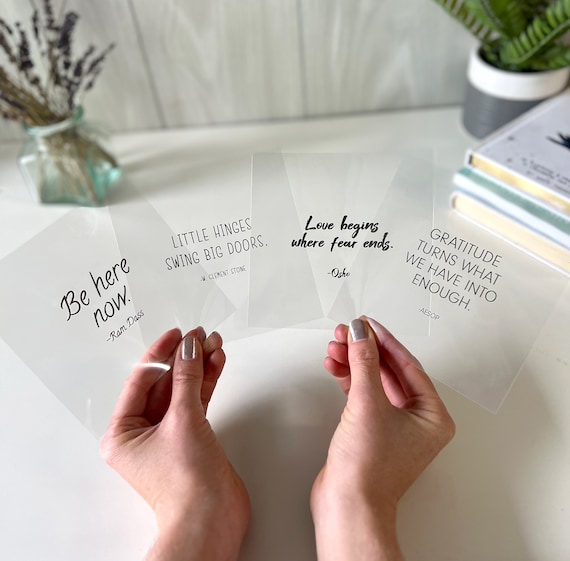 Be here
now.
-Ram Dass
LITTLE HINGES
SWING BIG DOORS.
-W. CLEMENT STONE
Love begins
where fear ends.
-Osho
GRATITUDE
TURNS WHAT
WE HAVE INTO
ENOUGH.
-AESOP